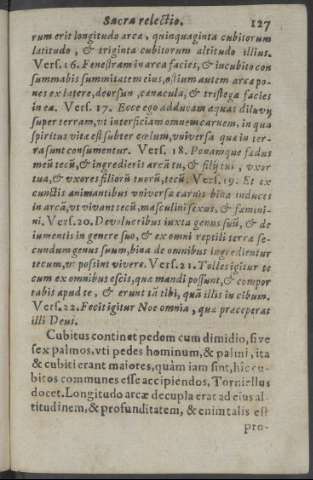 Sacra relectio. 127
rum erit longitudo arca, quinquaginta cubitorum
latitudo, & triginta cubitorum altitudo illius.
Vers. 16. Fenestram in arca facies, & in cubito con
summabis summitatem eius, ostium autem arca po-
nes ex latere, deorsun, cenacula, & tristega facies
in ea. Vers. 17. Ecce ego adducam aquas diluvij
super terram, vt interficiam omnem carnem. in qua
spiritus vita est subter cœlum, vniversa qua in ter-
ra sunt consumentur. Vers. 18. Ponamque fœdus
meũ tecũ, & ingredieris arcã tu, & filij tui, vxor
tua, & vxores filiorũ tuorũ, tecũ. Vers. 19. Et ex
cunctis animantibus vniversa carnis bina induces
in arcã, vt vivant tecũ, masculini sexus, & famini-
ni. Vers. 20. De volucribus iuxta genus suũ, & de
iumentis in genere suo, & ex omni reptili terra se-
cundum genus suum, bina de omnibus ingredientur
tecum, vt possint vivere. Vers. 21. Tolles igitur te
cum ex omnibus escis, qua mandi possunt, & compor
tabis apud te, & erunt tã tibi, quã illis in cibum.
Vers. 22. Fecit igitur Noe omnia, qua praceperat
illi Deus.
Cubitus continet pedem cum dimidio, sive
sex palmos, vti pedes hominum, & palmi, ita
& cubiti erant maiores, quàm iam sint, hic cu-
bitos communes esse accipiendos, Torniellus
docet. Longitudo arcæ decupla erat ad eius al-
titudinem, & profunditatem, & enim talis est
pro-